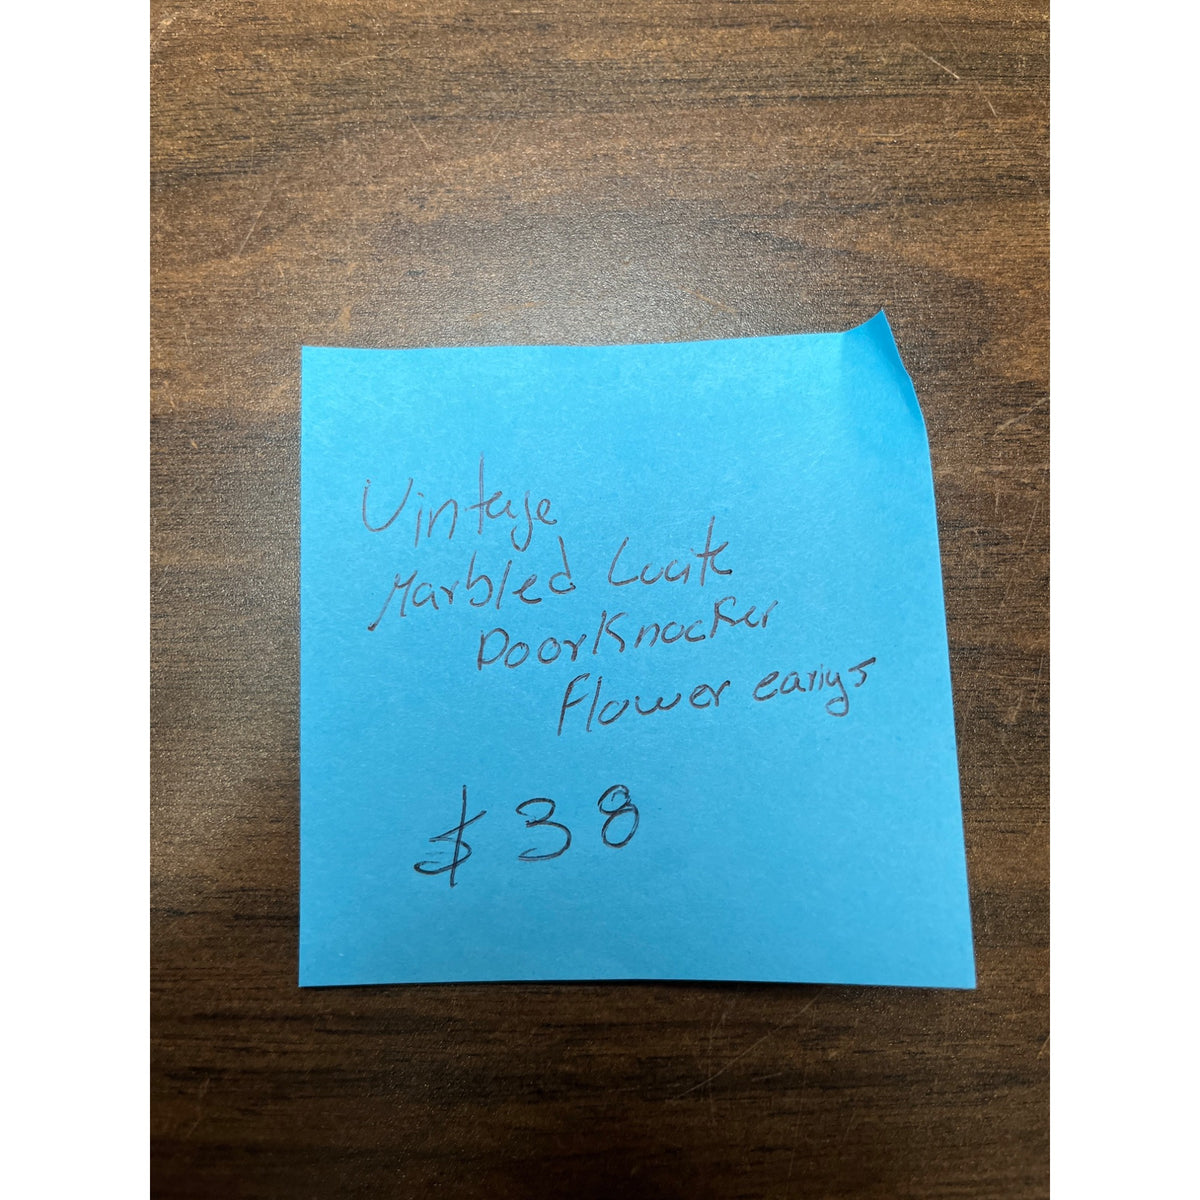 Vintage
Marbled Lucite
DoorKnocker
Flower earings
$38